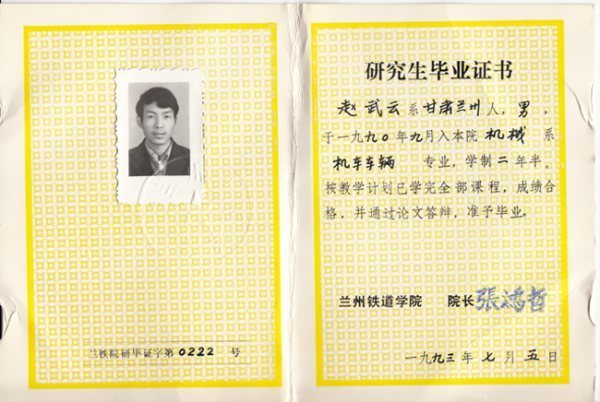 兰铁院研毕证字第0222号
研究生毕业证书
赵武云系甘肃兰州人,男,
于一九九〇年九月入本院机械系
机车车辆专业,学制二年半。
按教学计划已学完全部课程,成绩合
格,并通过论文答辩,准予毕业。
兰州铁道学院 院长 張鴻哲
一九九三年七月五日